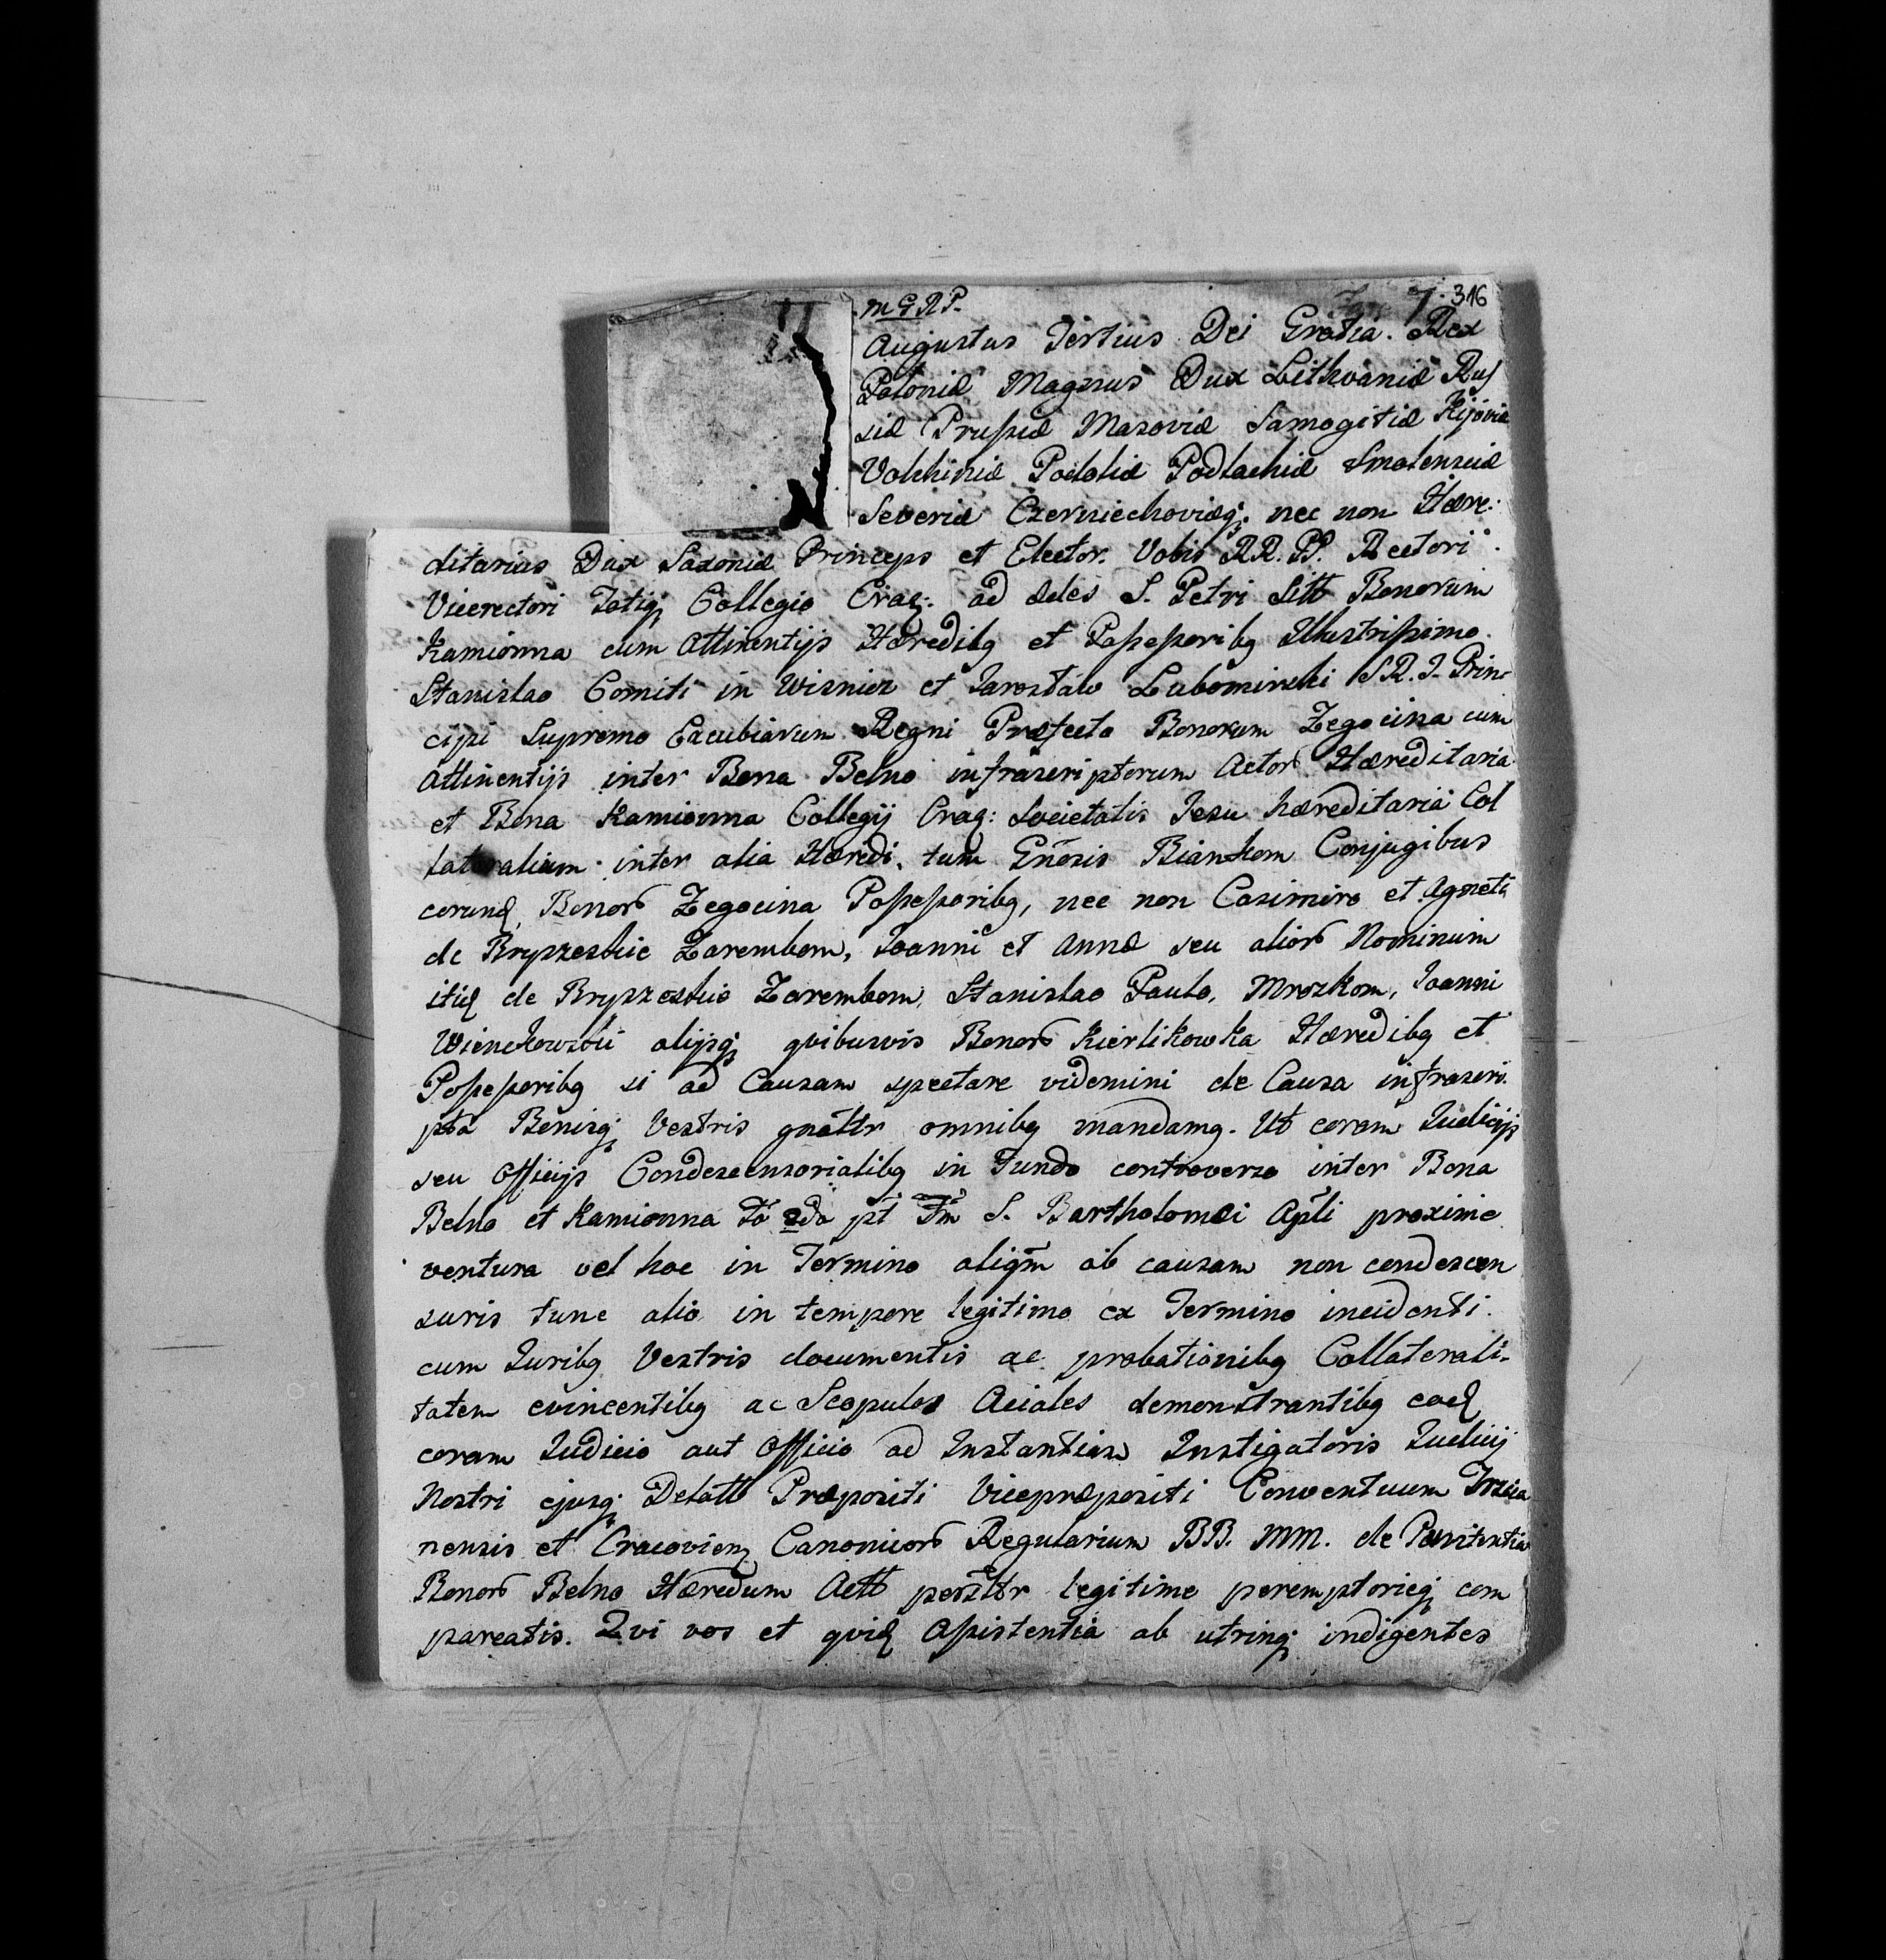 316
m G R P.
Augustus Tertius Dei Gratia. Rex
Poloniæ Magnus Dux Lithvaniæ Rus
siæ Prussiæ Masoviæ Samogitiæ Kijoviæ
Volhiniæ Podoliæ Podlachiæ Smolensciæ
Severiæ Czerniechoviæq; nec non Hære:
ditarius Dux Saxoniæ Princeps et Elector. Vobis RR. PP. Rectori
Vicerectori Totiq; Collegio Crac: ad ædes S. Petri Sitt Bonorum
Kamionna cum Attinentijs Hæredibg et Possessoribg Illustrissimo
Stanislao Comiti in Wisnicz et Jarosław Lubomirski S R. I. Prin
cipi Supremo Excubiarum Regni Præfecto Bonorum Zegocina cum
Attinentijs inter Bona Belno infrascriptorum Actorū Hæreditaria
et Bona Kamionna Collegij Crac: Societatis Jesu hæreditaria Col
lateralium inter alia Hæredi, tum Gñosis Biankom Conjugibus
eorund Bonorū Zegocina Possessoribg, nec non Casimiro et Agneti
de Bryszeskie Zarembom, Joanni et Annæ seu aliorū Nominum
itid de Bryszeskie Zarembom, Stanislao Paulo, Mrozkom, Joanni
Wienckowski alijsq; qvibusvis Bonorū Kierlikowka Hæredibg et
Possessoribg si ad Causam spectare videmini de Causa infrascri
pta Bonisq; Vestris gnãttr omnibg mandamg. Ut coram Judicijs
seu Officijs Condescensorialibg in Fundo controverso inter Bona
Belno et Kamionna fã 2da pt Fm S. Bartholomæi Apli proxime
ventura vel hoc in Termino aliqm ob causam non condescen
suris tunc alio in tempore legitimo ex Termino incidenti
cum Juribg Vestris documentis ac probationibg Collaterali-
tatem evincentibg ac Scopulos Aciales demonstrantibg eod
coram Judicio aut Officio ad Instantiam Instigatoris Judicij
Nostri ejusq; Delatt Præpositi Vicepræpositi Conventuum Trzcia
nensis et Cracovien Canonicorū Regularium BB. MM. de Pœnitentia
Bonorū Belno Hæredum Actt persttr legitime peremptorieq; com
pareatis. Qvi vos et qvid Assistentia ab utrinq; indigentes